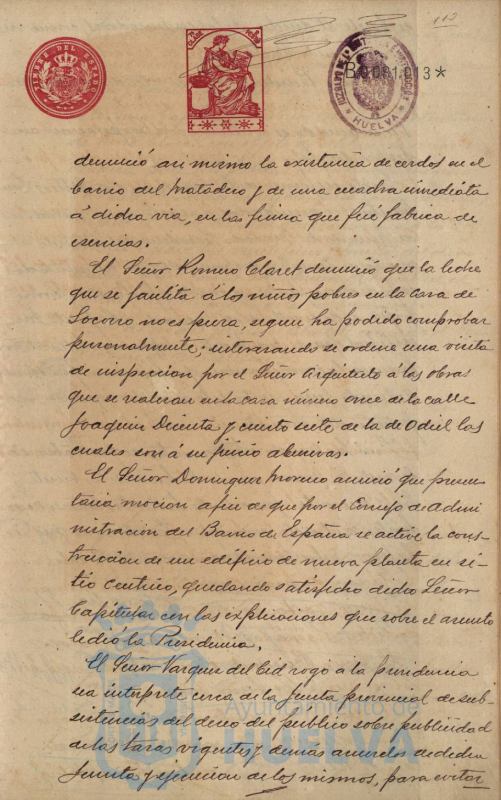 112
TIMBRE DEL ESTADO
B.0.081.013*
HUELVA
denunció asi mismo la existencia de cerdos en el
barrio del Matadero y de una cuadra inmediata
á dicha via, en la finca que fué fabrica de
esencias.
El Señor Romero Claret denunció que la leche
que se facilita á los niños pobres en la Casa de
Socorro no es pura, segun ha podido comprobar
personalmente; interesando se ordene una visita
de inspeccion por el Señor Arquitecto á las obras
que se realizan en la casa número once de la calle
Joaquin Dicenta y ciento siete de la de Odiel las
cuales son á su juicio abusivas.
El Señor Dominguez Moreno anunció que presen-
taria mocion a fin de que por el Consejo de Admi-
nistración del Banco de España se active la cons-
trucción de un edificio de nueva planta en si-
tio centrico, quedando satisfecho dicho Señor
Capitular con las explicaciones que sobre el asunto
le dió la Presidencia.
El Señor Vazquez del Cid rogó á la presidencia
sea interprete cerca de la Junta provincial de sub-
sistencias del deseo del publico sobre publicidad
de las tasas vigentes y demás acuerdos de dicha
Junta y ejecucion de los mismos, para evitar
Ayuntamiento de
HUELVA